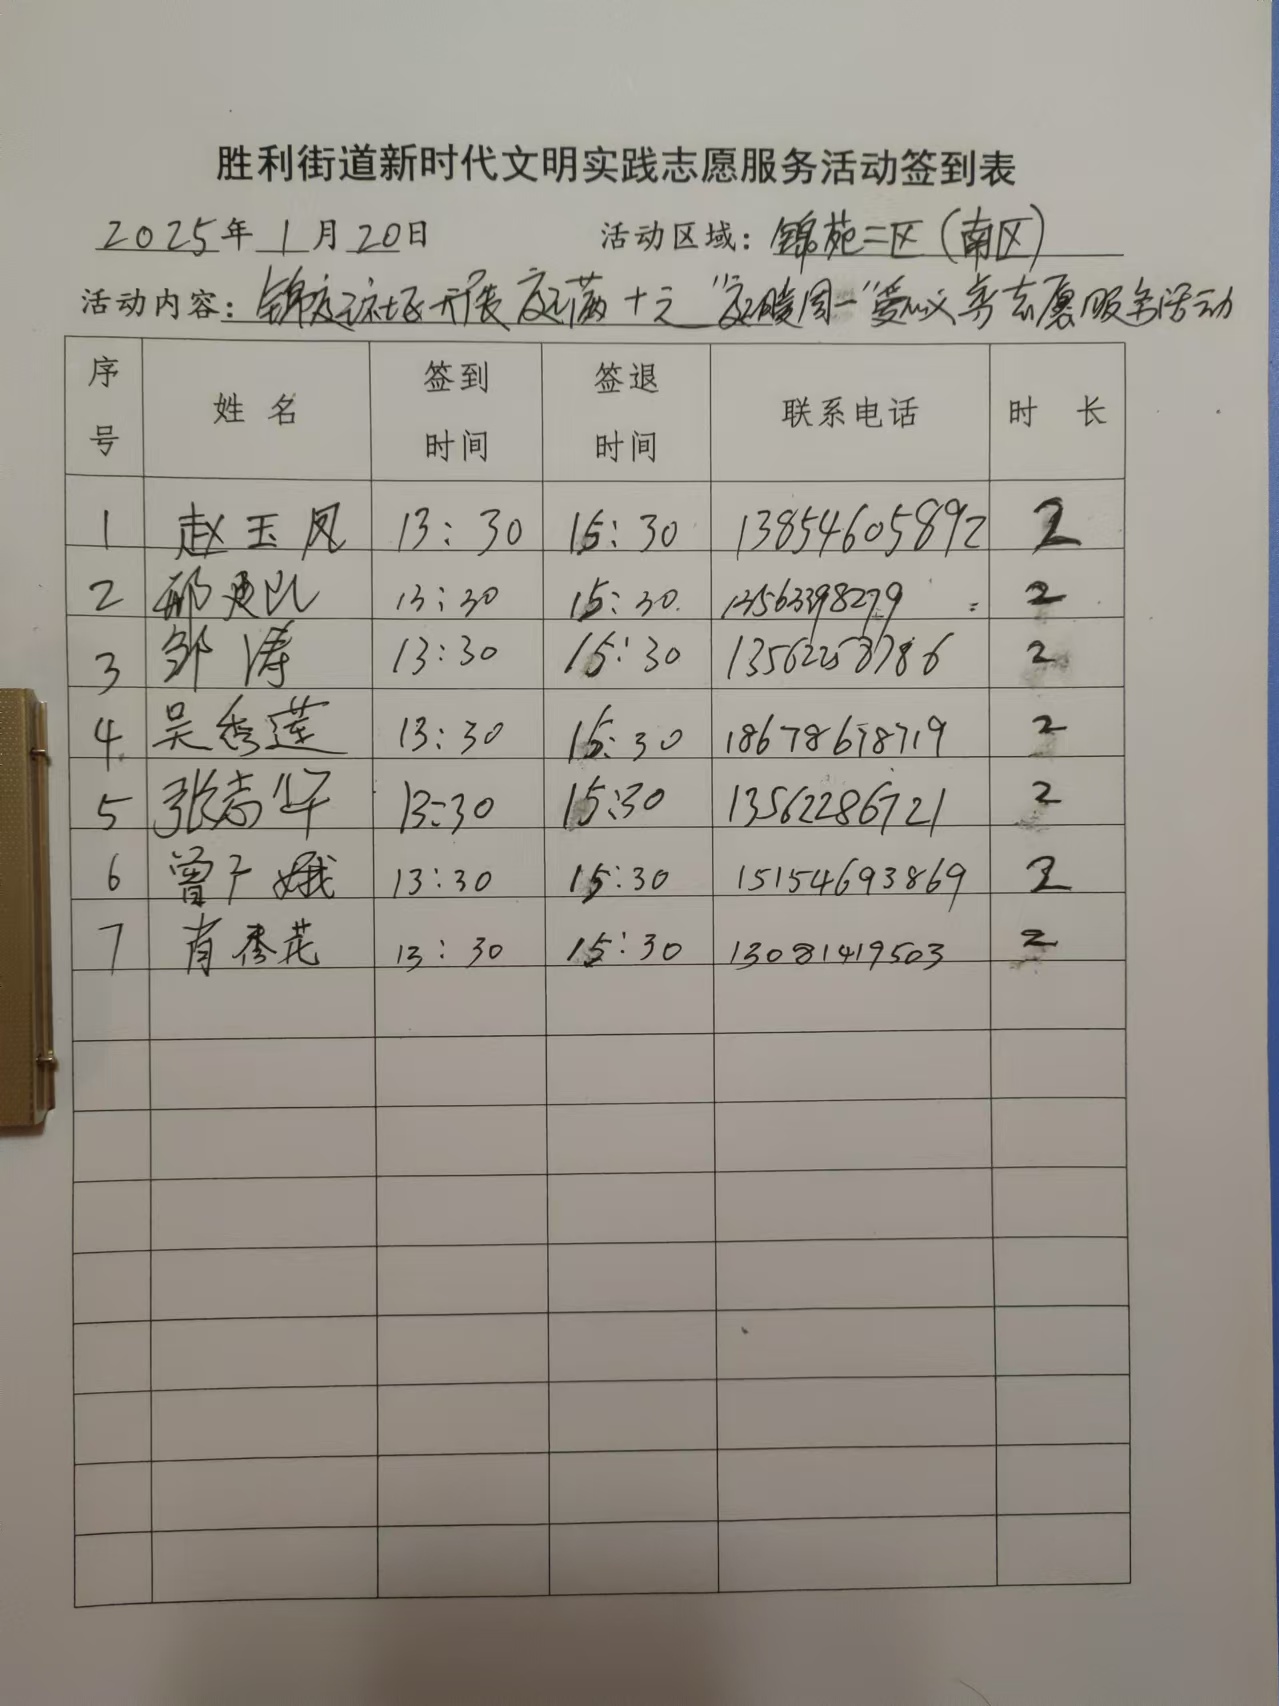 胜利街道新时代文明实践志愿服务活动签到表
2025年1月20日 活动区域：锦苑二区（南区）
活动内容：锦庭社区开展庭满十元"庭暖周一"爱心义剪志愿服务活动
序号 姓名 签到时间 签退时间 联系电话 时长
1 赵玉凤 13:30 15:30 13854605892 2
2 邢 13:30 15:30 13563398279 2
3 邹涛 13:30 15:30 2
4 吴秀莲 13:30 15:30 18678678719 2
5 张志华 13:30 15:30 13562286721 2
6 曾广娥 13:30 15:30 15154693869 2
7 肖秀花 13:30 15:30 13081419503 2